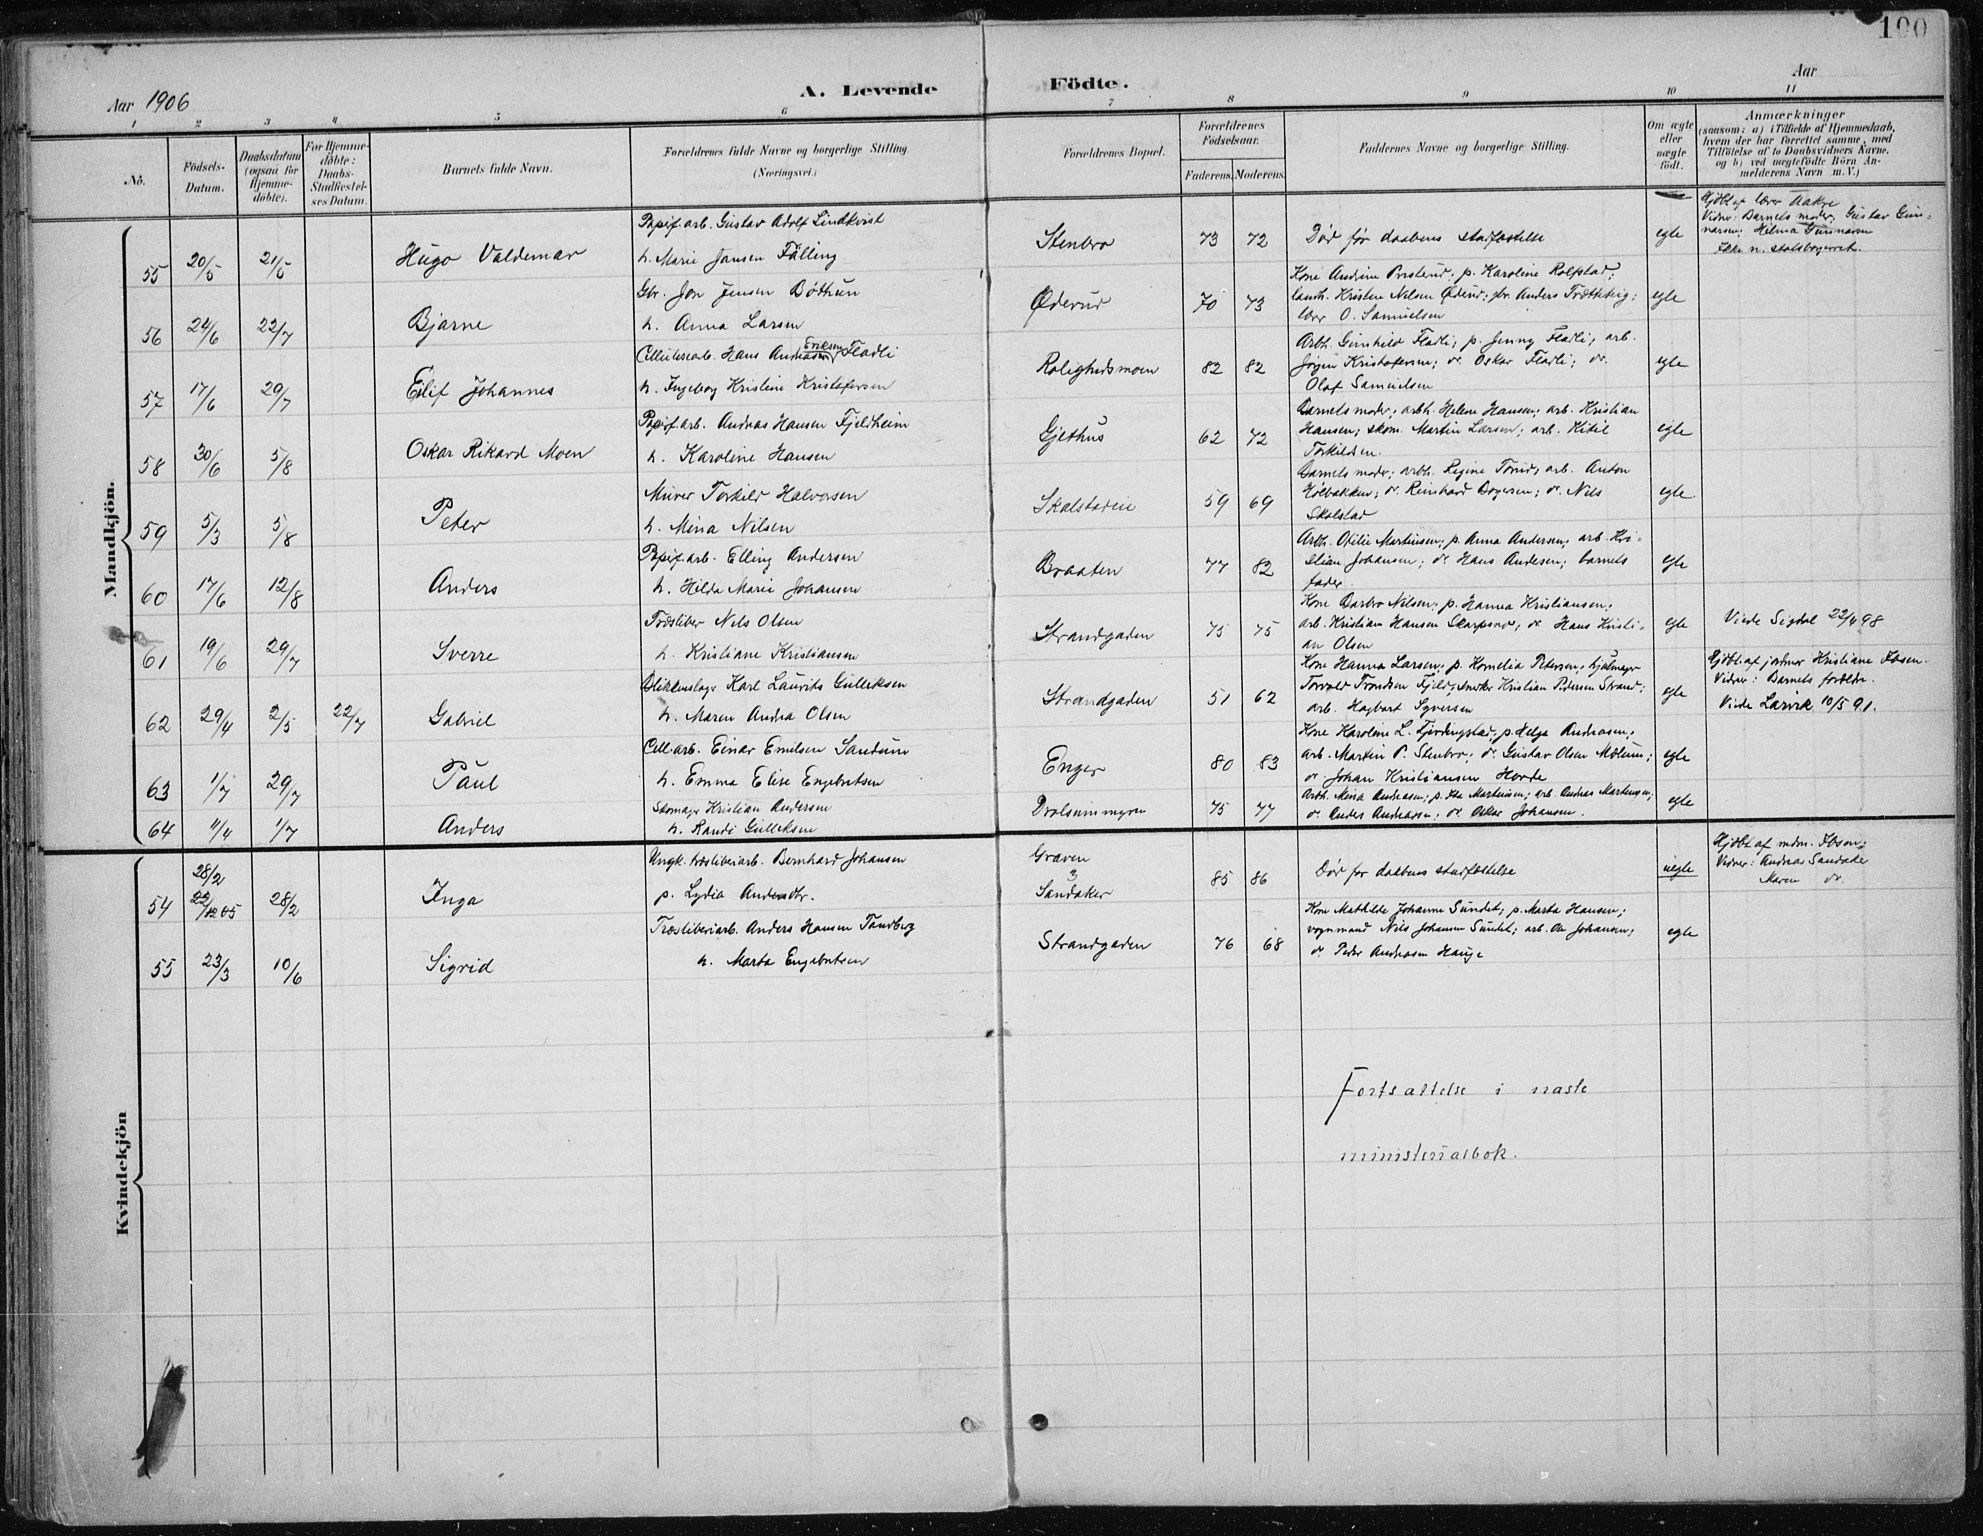 100
Aar 1906
A. Levende Födte.
Aar
1 2 3 4 5 6 7 8 9 10 11
No.
Födsels-Datum.
Daabsdatum (ogsaa for Hjemme-døbte).
For Hjemme-døbte: Daabs-Stadfæstel-ses Datum.
Barnets fulde Navn.
Forældrenes fulde Navne og borgerlige Stilling. (Næringsvei.)
Forældrenes Bopæl.
Forældrenes Fødselsaar.
Faderens. Moderens.
Faddernes Navne og borgerlige Stilling.
Om ægte eller uægte født.
Anmærkninger
(saasom: a) i Tilfælde af Hjemmedaab, hvem der har forrettet samme, med Tilføielse af to Daabsvidners Navne, og b) ved uægtefødte Börn An-melderens Navn m. V.)
Mandkjön.
55 20/5 21/5 Hugo Valdemar
Papirf.arb. Gustav Adolf Lindkvist
h. Marie Jansen Fälling
Stenbro 73 72 Død før daabens stadfæstelse egte
Hjdbt af lærer Aakre
Vidner: Barnets moder, Gustav Gun-
narsen; Helma Gunnarsen
Ikke n. statsborgerret.
56 24/6 22/7 Bjarne
Gbr. Jon Jensen Böthun
h. Anna Larsen
Øderud 70 73
Kone Andrine Prestrud; p. Karoline Rolfstad;
landh. Kristen Nilsen Øderud; gbr. Anders Trætteteig;
lærer O. Samuelsen
egte
57 17/6 29/7 Eilif Johannes
Cellulosearb. Hans Andreas Eriksen Fladli
h. Ingeborg Kristine Kristofersen
Rolighedsmoen 82 82
Arbh. Gunhild Fladli; p. Jenny Fladli; arb.
Jörgen Kristofersen; do Oskar Fladli; do.
Olaf Samuelsen
egte
58 30/6 5/8 Oskar Rikard Moen
Papirf.arb. Andreas Hansen Fjeldheim
h. Karoline Hansen
Gjethus 62 72
Barnets moder; arbh. Helene Hansen; arb. Kristian
Hansen; skom. Martin Larsen; arb. Kitil
Torkildsen.
egte
59 5/3 5/8 Peter
Murer Torkild Halvorsen
h. Mina Nilsen
Skalstadeie 59 69
Barnets moder; arbh. Regine Torud; arb. Anton
Hølbakken; do. Reinhard Borgersen; do. Nils
Skalstad
egte
60 17/6 12/8 Anders
Papirf.arb. Elling Andersen
h. Hilda Marie Johansen
Braaten 77 82
Arbh. Otilie Martinsen; p. Anna Andersen; arb. Kri-
stian Johansen; do Hans Andersen; barnets
fader.
egte
61 19/6 29/7 Sverre
Træsliber Nils Olsen
h. Kristiane Kristiansen
Strandgaden 75 75
Kone Barbro Nilsen; p. Hanna Kristiansen;
arb. Kristian Hansen Skarpsno; do Hans Kristi-
an Olsen
egte
Viede Sigdal 22/4 98
62 29/4 2/5 22/7 Gabriel
Blikkenslager Karl Laurits Gulleksen
h. Maren Andrea Olsen
Strandgaden 51 62
Kone Hanna Larsen; p. Kornelia Petersen; hjulmager
Torvald Trondsen Fjeld; snekker Kristian Pedersen Strand;
arb. Hagbart Syversen
egte
Hjdbt. af jordmor Kristiane Ibsen.
Vidner: Barnets foreldre.
Viede Larvik 10/5 91.
63 1/7 29/7 Paul
Cell.arb. Einar Emilsen Sandum
h. Emma Elise Engebretsen
Enger 80 83
Kone Karoline L. Fjerdingstad; p. Helga Andreasen;
arb. Martin P. Stenbro; do Gustav Olsen Mælum;
do Johan Kristiansen Horde
egte
64 11/4 1/7 Anders
Skomager Kristian Andersen
h. Randi Gulleksen
75 77
Arbh. Mina Andreasen; p. Ida Martinsen; arb. Andreas Martinsen;
do Anders Andreasen; do Oskar Johansen.
egte
Kvindekjön
54 28/2 22/12 05 28/2 Inga
Ungk. træsliberiarb. Bernhard Johansen
p. Lydia Andersdtr.
Graven
3
Sandaker
85 86 Død før daabens stadfæstelse uegte
Hjdbt af mdm. Ibsen;
Vidner: Andreas Sandaker
Maren do.
55 23/3 10/6 Sigrid
Træsliberiarb. Anders Hansen Tandberg
h. Marta Engebretsen
Strandgaden 76 68
Kone Mathilde Johanne Sundet; p. Marta Hansen;
vognmand Nils Johansen Sundet; arb. Ole Johansen;
do Peder Andreasen Hauge
egte
Fortsættelse i næste
ministerialbok.